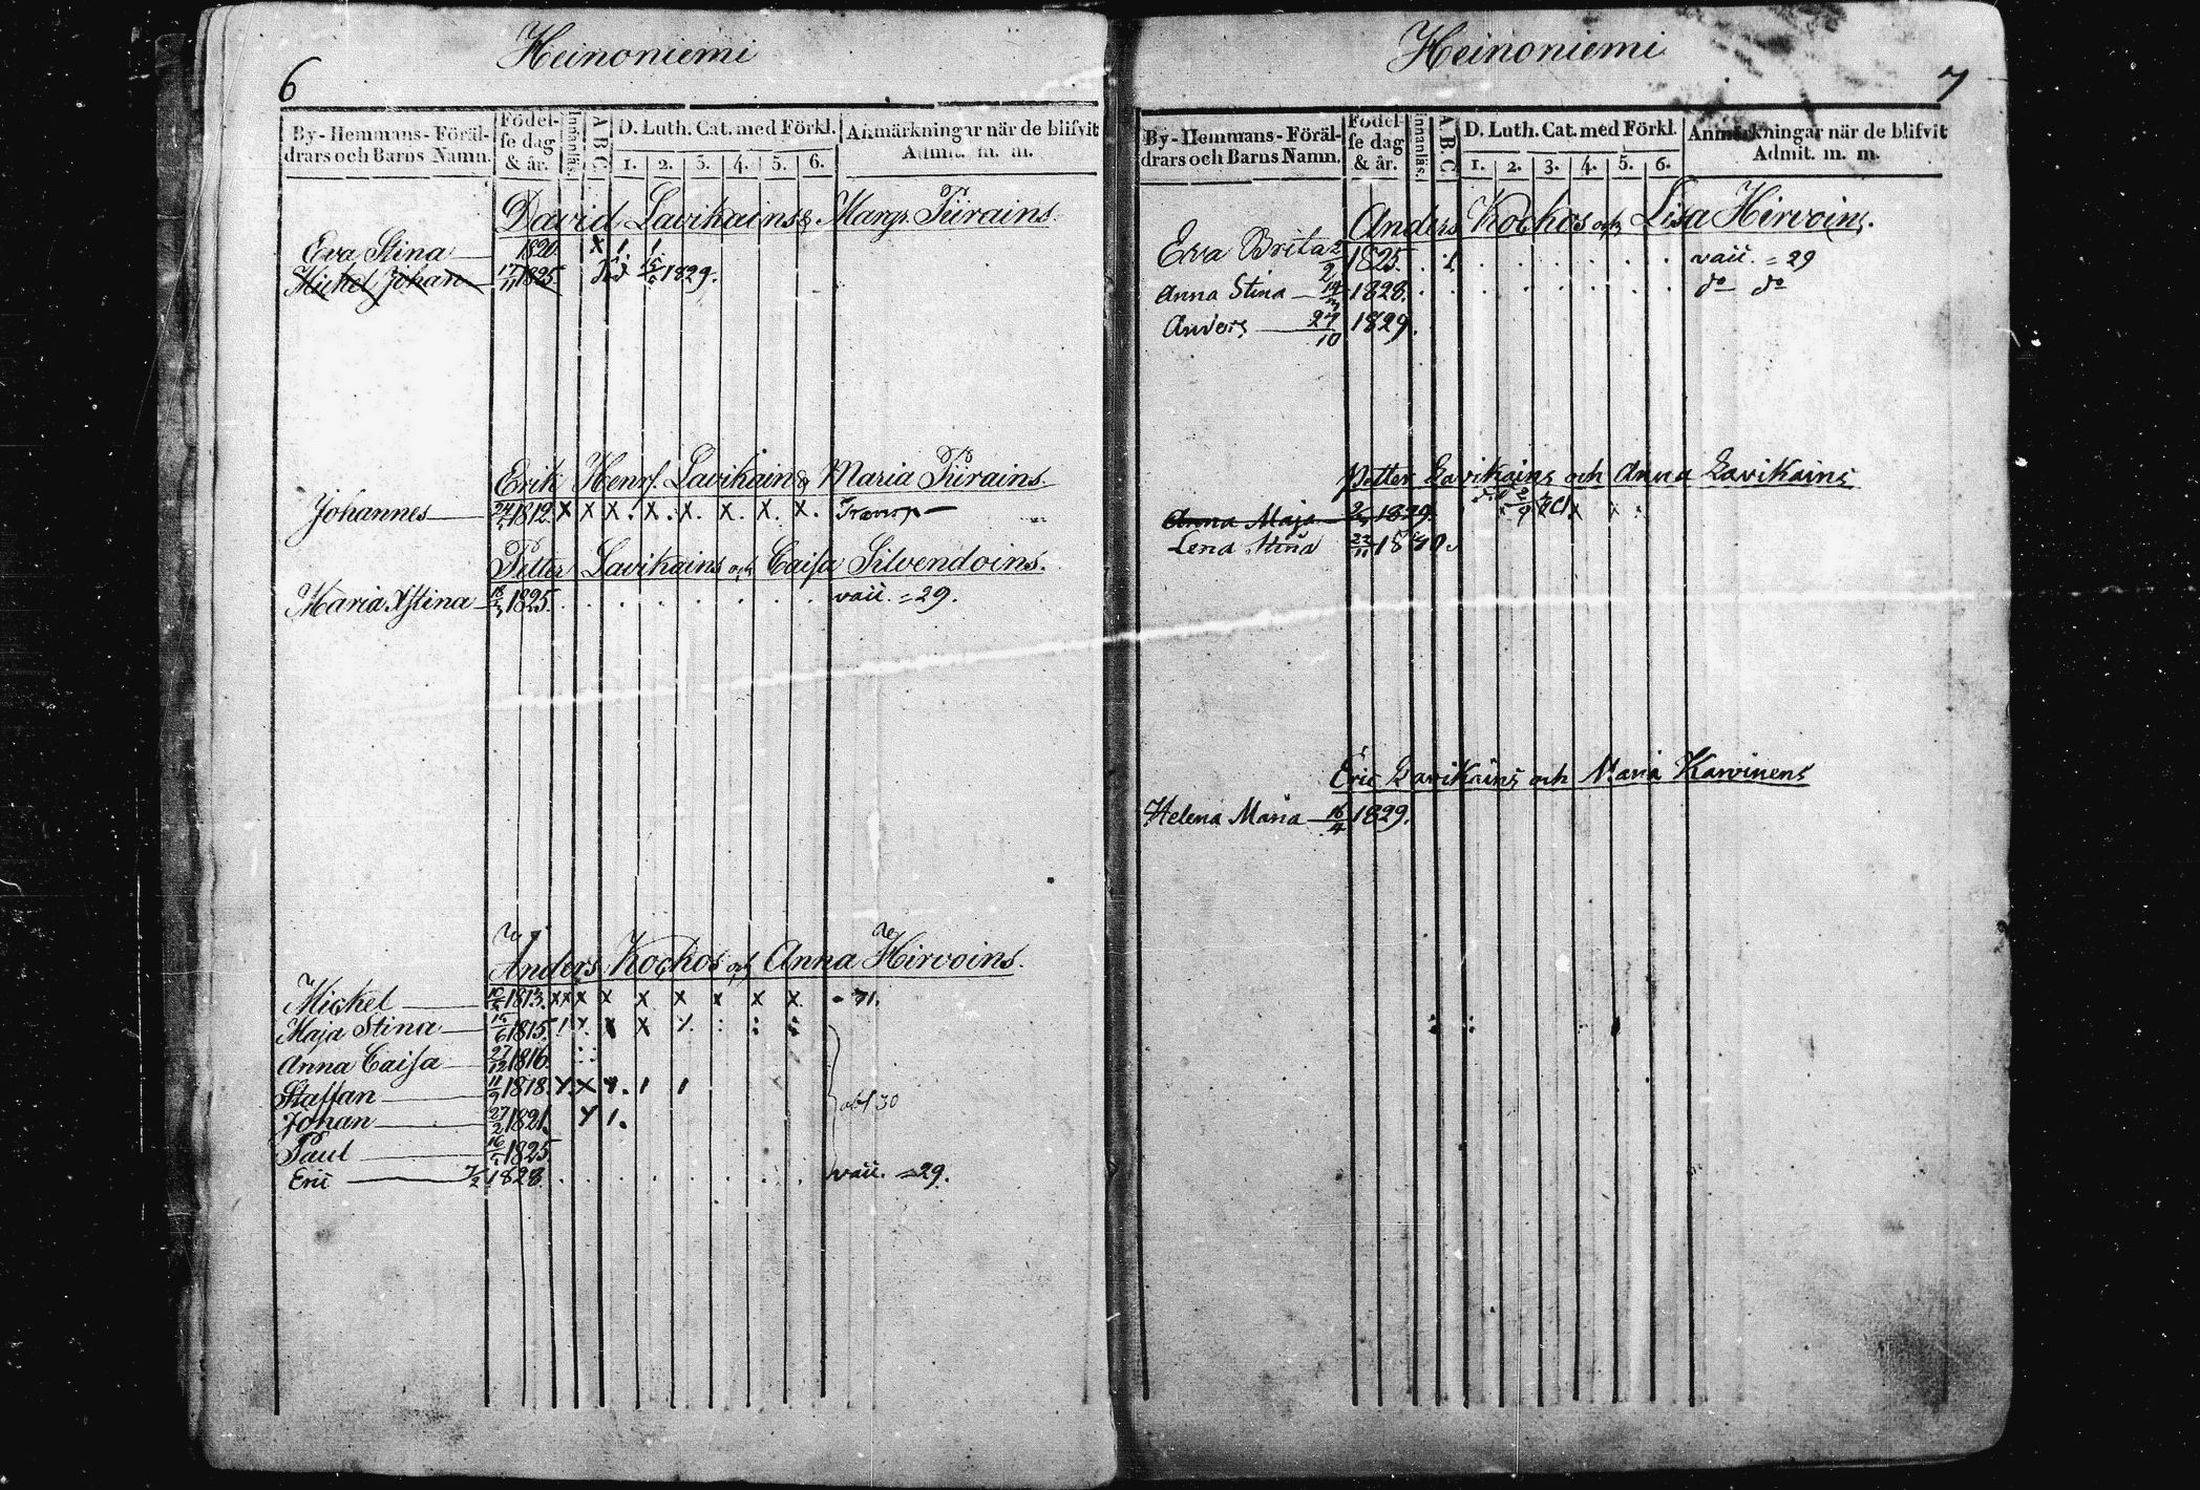 Heinoniemi
6
By-Hemmans-Föräl-
drars och Barns Namn.
Födel-
se dag
& år.
Innanläs.
A B C
D. Luth. Cat. med Förkl.
1. 2. 3. 4. 5. 6.
Anmärkningar när de blifvit
Admit. m. m.
David Lavikains & Margr. Piirains.
Eva Stina 1820. X 1. 1
Michel Johan 17/11 1825. 1829.
Erik Henr. Lavikain & Maria Piirains.
Johannes 1812. X X X. X. X. X. X. X. Transp
Petter Lavikains och Caisa Silvendoins.
Maria Xstina 1825. vaii. = 29.
Anders Kochos och Anna Hirvoins.
Michel 1813. X X X X X X X X X. 31.
Maja Stina 1815.
Anna Caisa 27/12 1816.
Staffan 11/9 1818.
Johan 27/2 1821.
Paul 1825
Eric 1828. vaii. = 29.
Heinoniemi
7
By-Hemmans-Föräl-
drars och Barns Namn.
Födel-
se dag
& år.
Innanläs.
A. B. C.
D. Luth. Cat. med Förkl.
1. 2. 3. 4. 5. 6.
Anmärkningar när de blifvit
Admit. m. m.
Anders Kochos och Lisa Hirvoins.
Eva Brita 1825. vaii. = 29
Anna Stina 1828. do do
Anders 27/10 1829.
Petter Lavikains och Anna Lavikains
Anna Maja 1829.
Lena Stina 22/11
Eric Lavikains och Maria Karvinens
Helena Maria 16/4 1829.